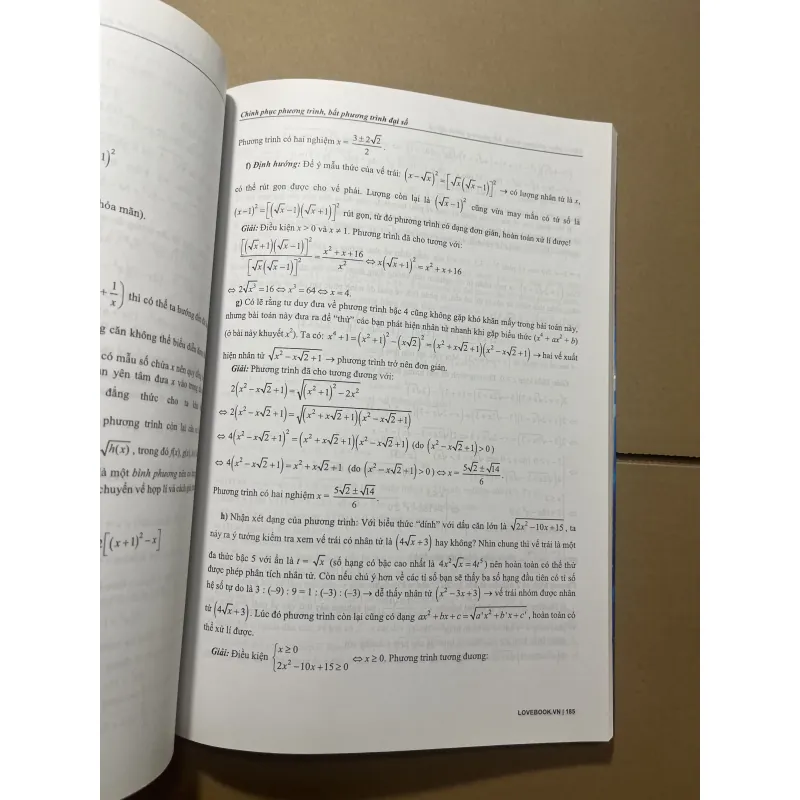 1)²
hóa mãn).
+ 1/x) thì có thể ta hướng đến
g căn không thể biểu diễn
có mẫu số chứa x nên quy đồng
n yên tâm đưa x vào trong
đẳng thức cho ta
phương trình còn lại
√h(x), trong đó f(x),
à một bình phương
chuyển về hợp lí và cách
[(x+1)²−x]
Chinh phục phương trình, bất phương trình đại số
Phương trình có hai nghiệm x = (3±2√2)/2.
f) Định hướng: Để ý mẫu thức của vế trái: (x−√x)²=[√x(√x−1)]² → có lượng nhân tử là x,
có thể rút gọn được cho vế phải. Lượng còn lại là (√x−1)² cũng vừa may mắn có tử số là
(x−1)²=[(√x−1)(√x+1)]² rút gọn, từ đó phương trình có dạng đơn giản, hoàn toàn xử lí được!
Giải: Điều kiện x > 0 và x ≠ 1. Phương trình đã cho tương với:
[(√x+1)(√x−1)]²/[√x(√x−1)]² = (x²+x+16)/x² ⇔ x(√x+1)² = x²+x+16
⇔ 2√x³=16 ⇔ x³=64 ⇔ x=4.
g) Có lẽ rằng tư duy đưa về phương trình bậc 4 cũng không gặp khó khăn mấy trong bài toán này,
nhưng bài toán này đưa ra để "thử" các bạn phát hiện nhân tử nhanh khi gặp biểu thức (x⁴ + ax² + b)
(ở bài này khuyết x²). Ta có: x⁴+1=(x²+1)²−(x√2)²=(x²+x√2+1)(x²−x√2+1) → hai vế xuất
hiện nhân tử √(x²−x√2+1) → phương trình trở nên đơn giản.
Giải: Phương trình đã cho tương đương với:
2(x²−x√2+1)=√((x²+1)²−2x²)
⇔ 2(x²−x√2+1)=√((x²+x√2+1)(x²−x√2+1))
⇔ 4(x²−x√2+1)²=(x²+x√2+1)(x²−x√2+1) (do (x²−x√2+1)>0)
⇔ 4(x²−x√2+1)=x²+x√2+1 (do (x²−x√2+1)>0) ⇔ x=(5√2±√14)/6.
Phương trình có hai nghiệm x = (5√2±√14)/6.
h) Nhận xét dạng của phương trình: Với biểu thức "dính" với dấu căn lớn là √(2x²−10x+15), ta
nảy ra ý tưởng kiểm tra xem vế trái có nhân tử là (4√x+3) hay không? Nhìn chung thì vế trái là một
đa thức bậc 5 với ẩn là t = √x (số hạng có bậc cao nhất là 4x²√x=4t⁵) nên hoàn toàn có thể thử
được phép phân tích nhân tử. Còn nếu chú ý hơn về các tỉ số bạn sẽ thấy ba số hạng đầu tiên có tỉ số
hệ số tự do là 3 : (–9) : 9 = 1 : (–3) : (–3) → dễ thấy nhân tử (x²−3x+3) → vế trái nhóm được nhân
tử (4√x+3). Lúc đó phương trình còn lại cũng có dạng ax²+bx+c=√(a'x²+b'x+c'), hoàn toàn có
thể xử lí được.
Giải: Điều kiện {x≥0; 2x²−10x+15≥0 ⇔ x ≥ 0. Phương trình tương đương:
LOVEBOOK.VN | 185